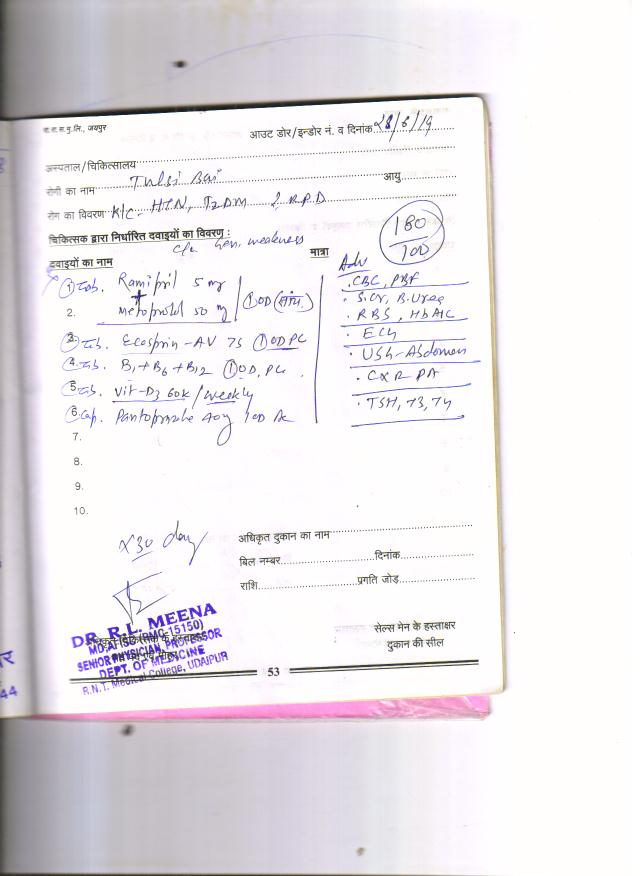 रा.रा.स.पु.लि., जयपुर
आउट डोर/इन्डोर नं. व दिनांक 28/6/19
अस्पताल/चिकित्सालय
रोगी का नाम Tulsi Bai आयु
रोग का विवरण K/C- HTN, T2DM ? R.P.D
180/100
चिकित्सक द्वारा निर्धारित दवाइयों का विवरण :
c/o Gen. weakness
दवाइयों का नाम मात्रा Adv
1 Tab. Ramipril 5 mg
+
2. Metoprolol 50 mg 1 OD
3. Tab. Ecosprin-AV 75 1 OD PC
4. Tab. B1+B6+B12 1 OD, PC
5. Tab. Vit-D3 60k/weekly
6. Cap. Pantoprazole 40mg 1 OD AC
7.
8.
9.
10.
. CBC, PBF
. S.Cr, B.Urea
. RBS, HbA1C
. ECG
. USG-Abdomen
. CXR PA
. TSH, T3, T4
x 30 day
अधिकृत दुकान का नाम
बिल नम्बर दिनांक
राशि प्रगति जोड़
DR. R.L. MEENA
(RMC-15150)
SENIOR PHYSICIAN, PROFESSOR
DEPT. OF MEDICINE
R.N.T. Medical College, UDAIPUR
सेल्स मेन के हस्ताक्षर
दुकान की सील
53
44